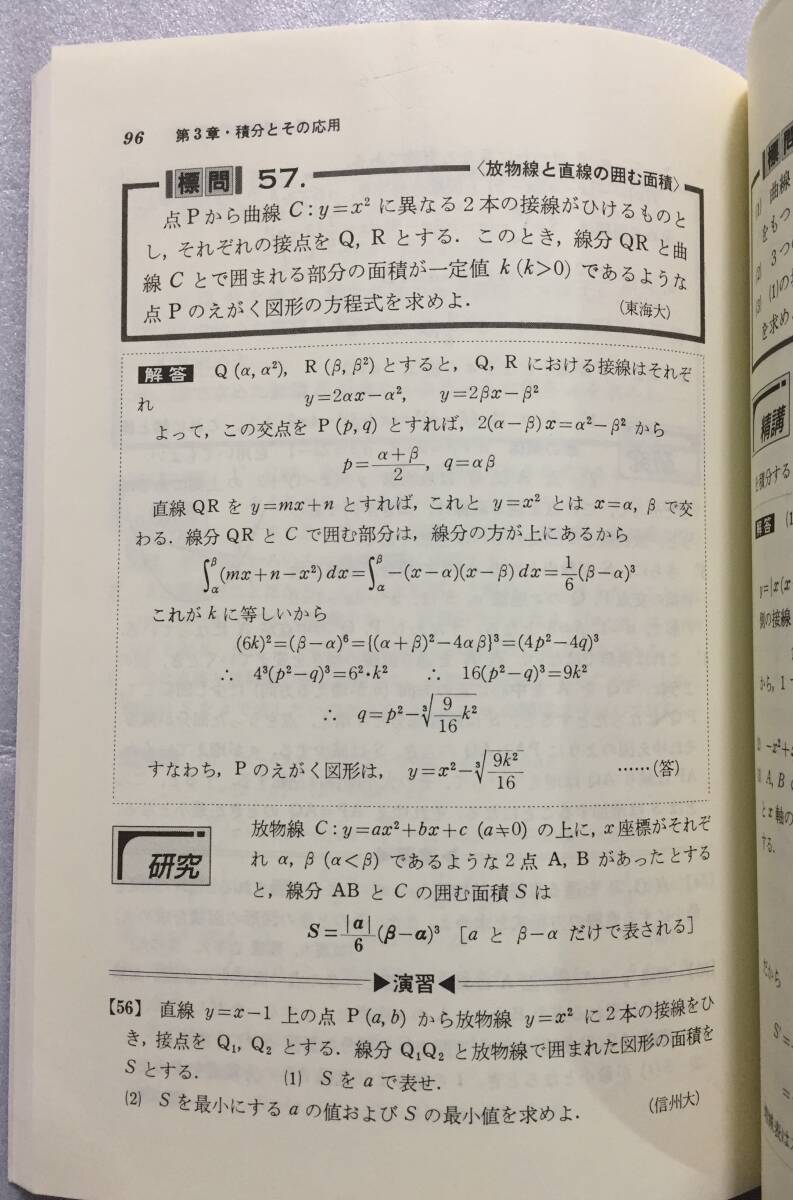 96 第3章・積分とその応用
標問 57. 〈放物線と直線の囲む面積〉
点Pから曲線 C：y=x² に異なる2本の接線がひけるものと
し，それぞれの接点を Q, R とする．このとき，線分 QR と曲
線 C とで囲まれる部分の面積が一定値 k (k>0) であるような
点Pのえがく図形の方程式を求めよ． （東海大）
解答 Q (α, α²)， R (β, β²) とすると，Q, R における接線はそれぞ
れ y=2αx−α²， y=2βx−β²
よって，この交点を P (p, q) とすれば，2(α−β)x=α²−β² から
p=(α+β)/2, q=αβ
直線 QR を y=mx+n とすれば，これと y=x² とは x=α, β で交
わる．線分 QR と C で囲む部分は，線分の方が上にあるから
∫_α^β (mx+n−x²)dx=∫_α^β −(x−α)(x−β)dx=1/6(β−α)³
これが k に等しいから
(6k)²=(β−α)⁶={(α+β)²−4αβ}³=(4p²−4q)³
∴ 4³(p²−q)³=6²·k² ∴ 16(p²−q)³=9k²
∴ q=p²−∛(9/16 k²)
すなわち，P のえがく図形は， y=x²−∛(9k²/16) ……(答)
研究 放物線 C：y=ax²+bx+c (a≠0) の上に，x座標がそれぞ
れ α, β (α<β) であるような2点 A, B があったとする
と，線分 AB と C の囲む面積 S は
S=|a|/6(β−α)³ [a と β−α だけで表される]
▶演習◀
【56】 直線 y=x−1 上の点 P(a, b) から放物線 y=x² に2本の接線をひ
き，接点を Q₁, Q₂ とする．線分 Q₁Q₂ と放物線で囲まれた図形の面積を
S とする． (1) S を a で表せ．
(2) S を最小にする a の値および S の最小値を求めよ． （信州大）
標問
(1) 曲線
をもつ
(2) 3つ
(3) (1)の
を求め
精講
と積分する
解答 (1
y=|x(x
側の接線
から，1
② −x²+
③ A, B
とx軸の
する．
だから
S'=
=